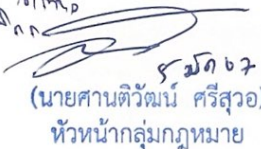 5 มีค 67
(นายศานติวัฒน์ ศรีสุวอ
หัวหน้ากลุ่มกฎหมาย